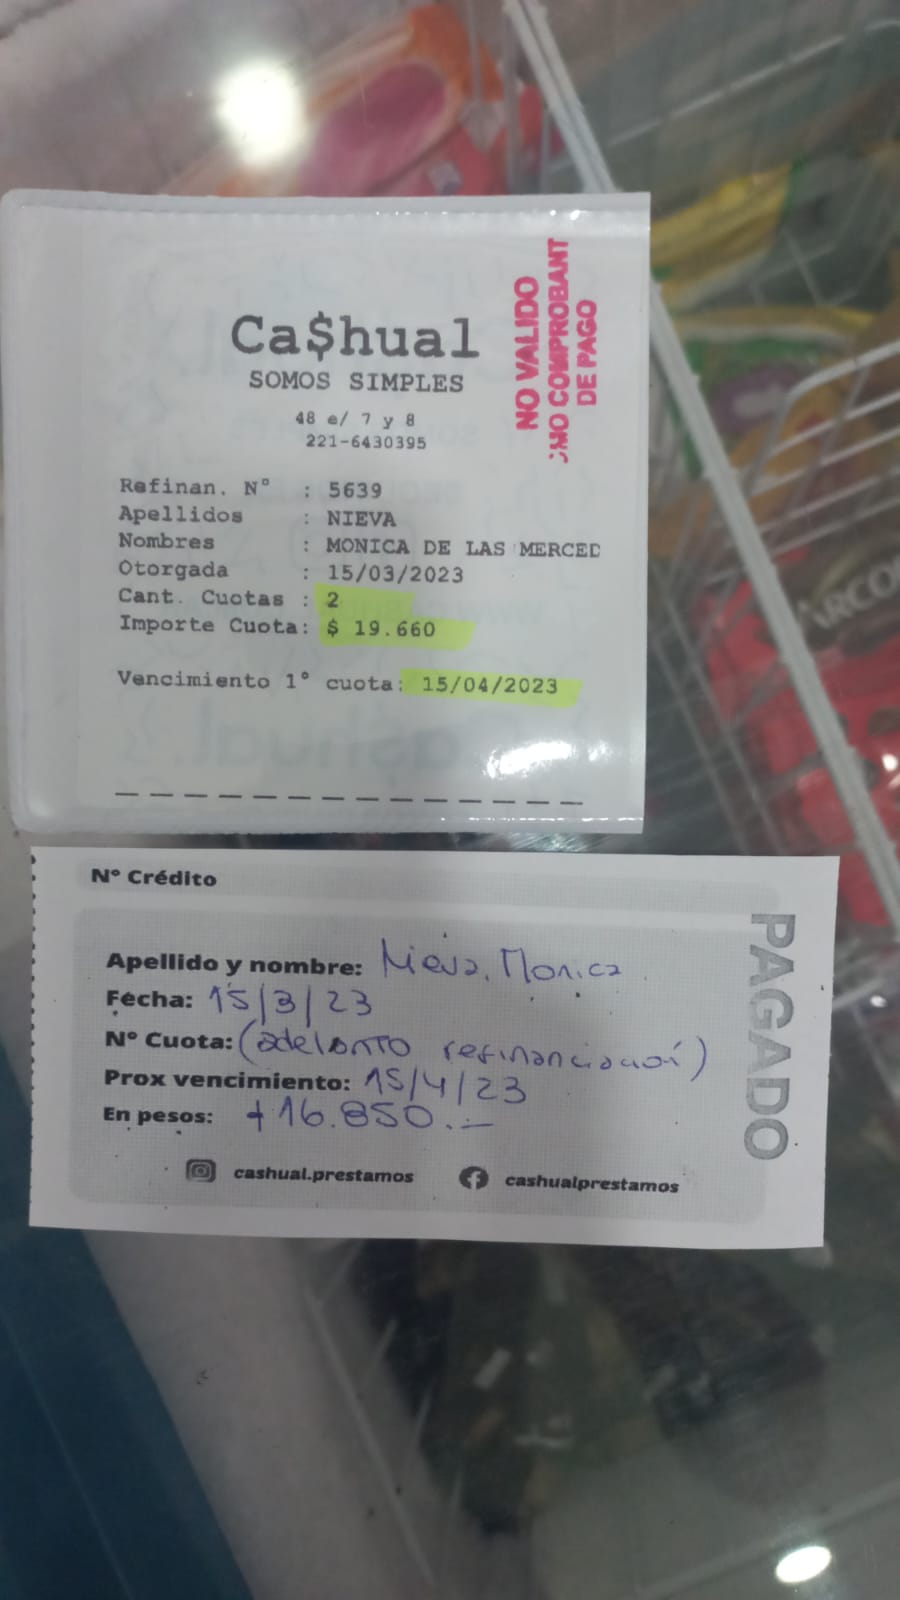 Ca$hual
SOMOS SIMPLES
48 e/ 7 y 8
221-6430395
NO VALIDO
COMO COMPROBANT
DE PAGO
Refinan. N° : 5639
Apellidos : NIEVA
Nombres : MONICA DE LAS MERCED
Otorgada : 15/03/2023
Cant. Cuotas : 2
Importe Cuota: $ 19.660
Vencimiento 1° cuota: 15/04/2023
N° Crédito
Apellido y nombre: Nieva, Monica
Fecha: 15/3/23
N° Cuota: (adelanto refinanciación)
Prox vencimiento: 15/4/23
En pesos: $16.850.-
cashual.prestamos
cashualprestamos
PAGADO